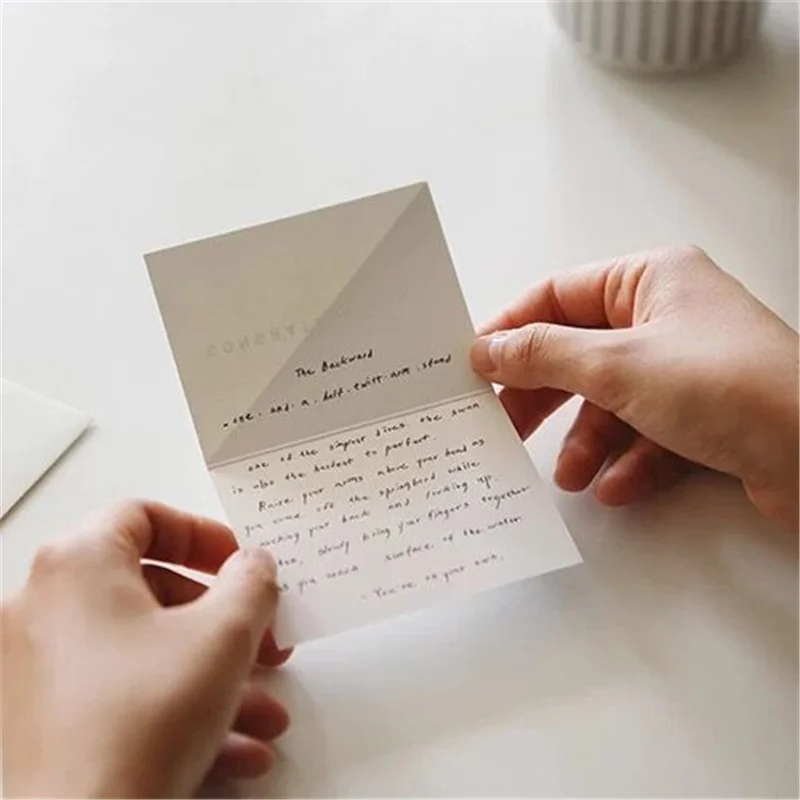 The Backward
-one-and-a-half-twist-arm-stand
one of the simplest dives, the swan
is also the hardest to perfect.
Raise your arms above your head as
you come off the springboard while
arching your back and looking up.
slowly bring your fingers together
as you reach surface of the water.
-You're on your own.